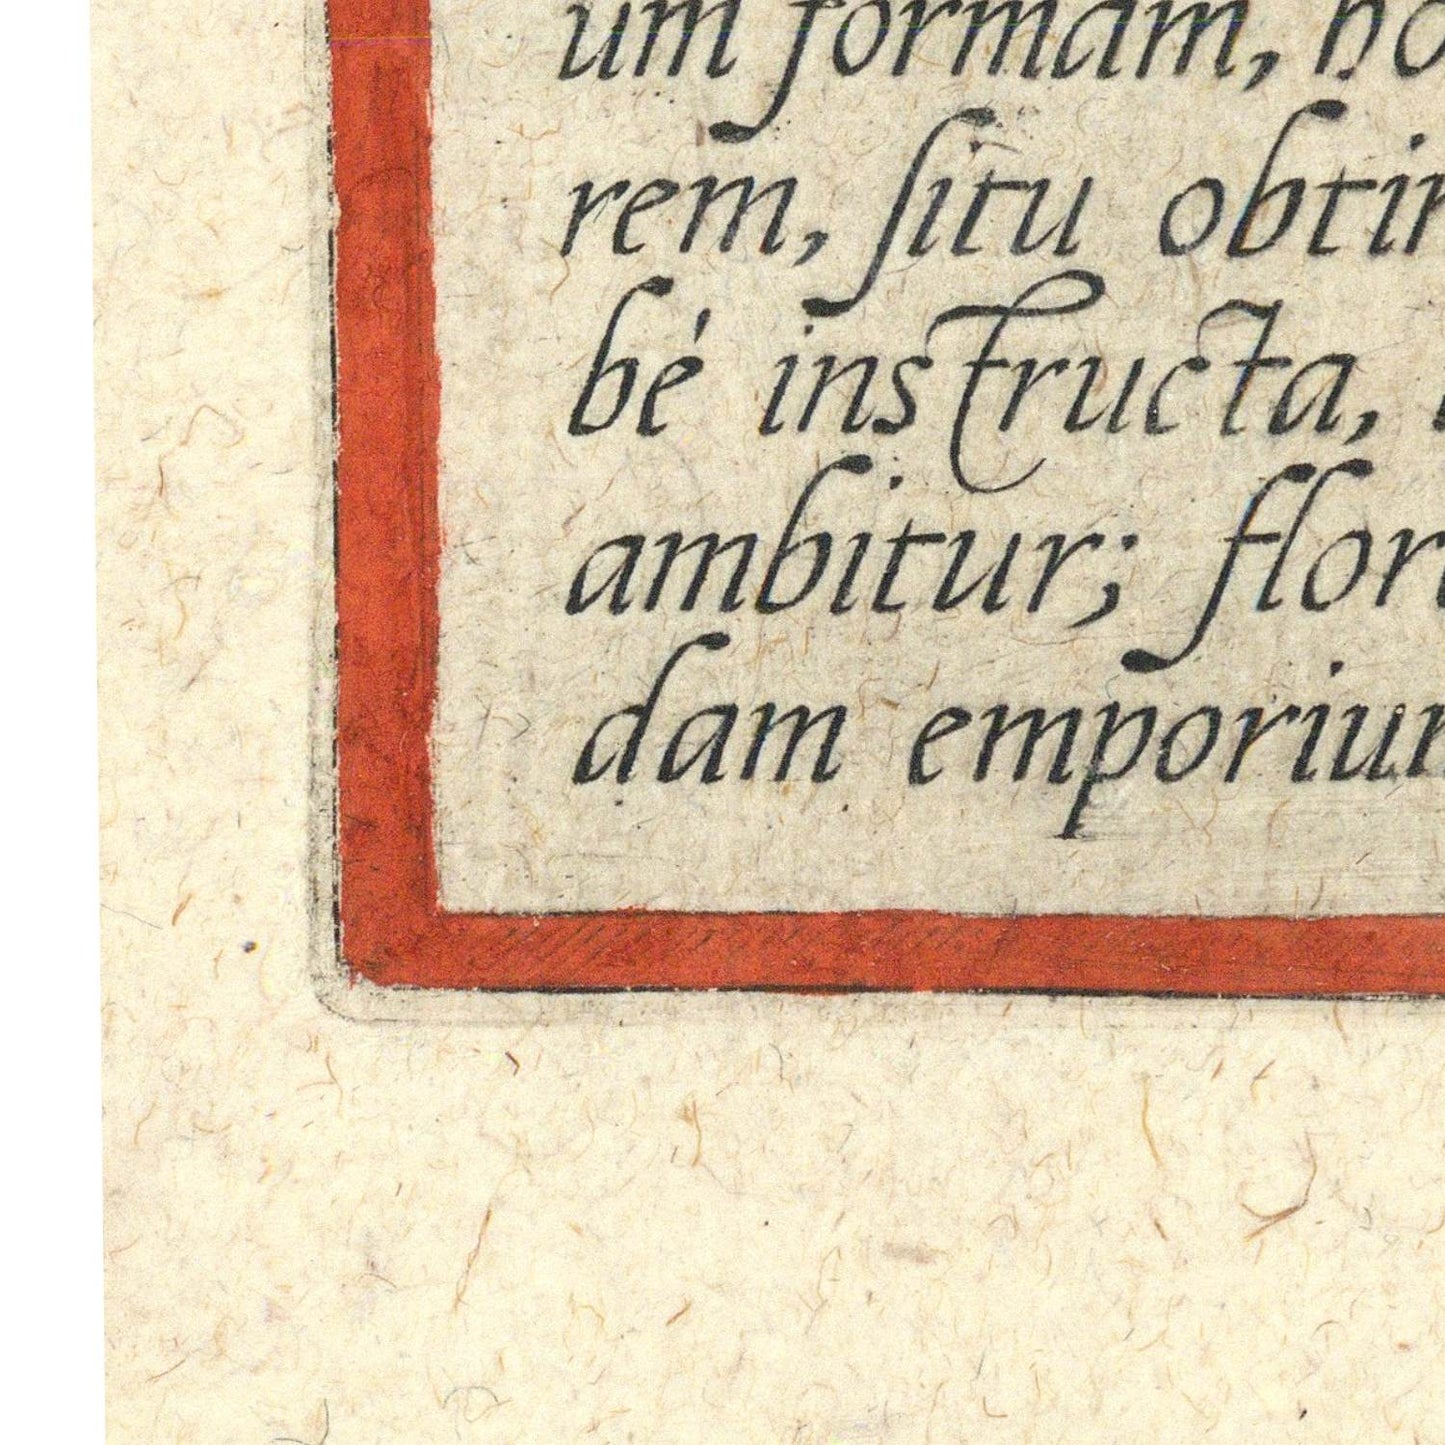 um formam, ho
rem, ſitu obtin
bé instructa,
ambitur; flori
dam emporium